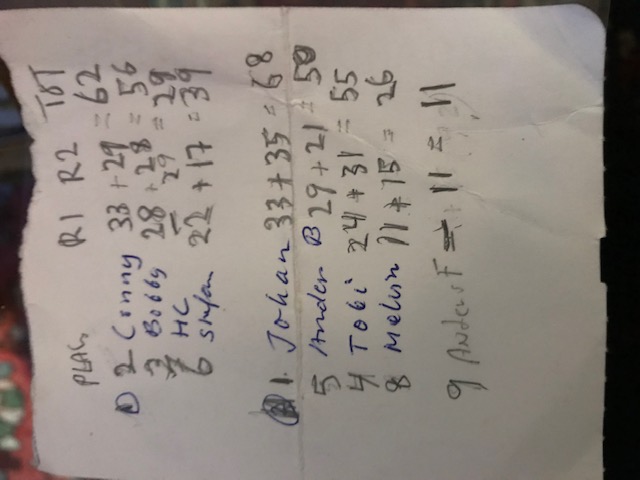 PLAC R1 R2 TOT
2 Conny 33 + 29 = 62
3 Bobby 28 + 28 = 56
7 HC - 29 = 29
6 Stefan 22 + 17 = 39
1. Johan 33 + 35 = 68
5 Anders B 29 + 21 = 50
4 Tobi 24 + 31 = 55
8 Melvin 11 + 15 = 26
9 Anders F - 11 = 11